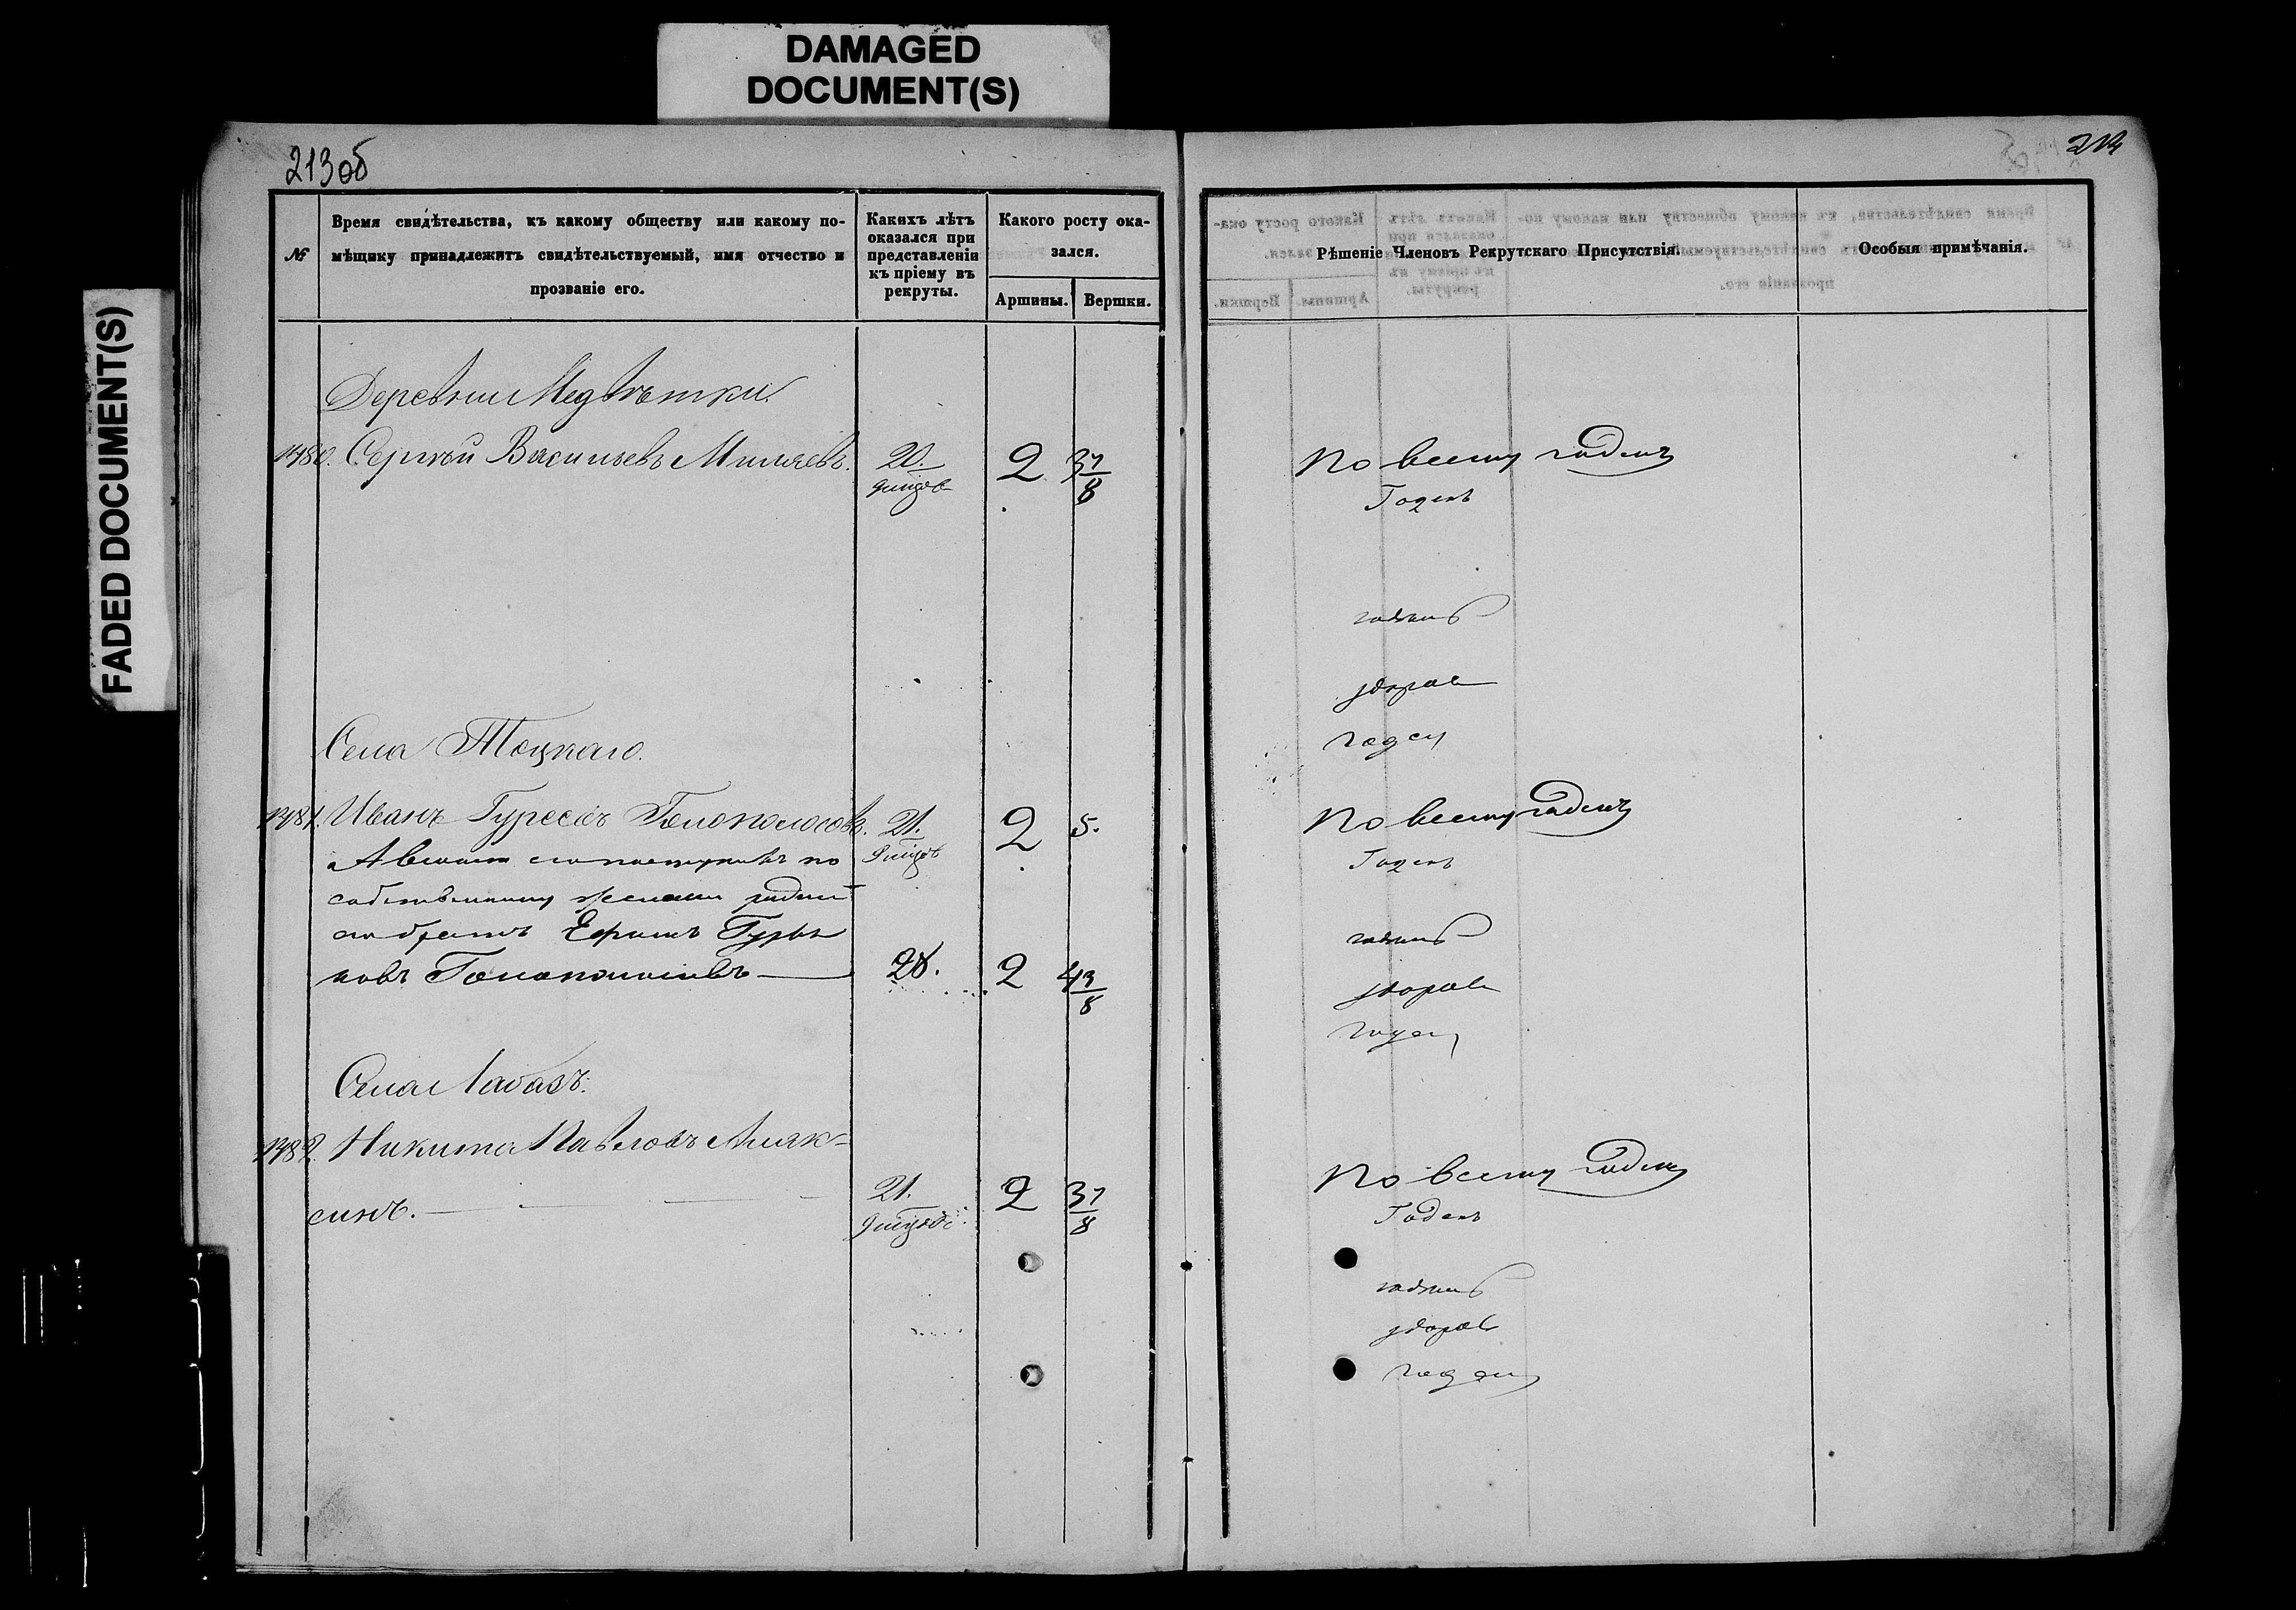 DAMAGED
DOCUMENT(S)
FADED DOCUMENT(S)
213об
214
№
Время свидѣтельства, къ какому обществу или какому по-
мѣщику принадлежитъ свидѣтельствуемый, имя отчество и
прозваніе его.
Какихъ лѣтъ
оказался при
представленіи
къ пріему въ
рекруты.
Какого росту ока-
зался.
Аршины. Вершки.
Рѣшеніе Членовъ Рекрутскаго Присутствія.
Особыя примѣчанія.
Деревни Медвѣтки.
1480. Сергѣй Васильевъ Миляевъ. 20. 2 3 7/8 По всему годенъ
Годенъ
годенъ
здоровъ
годен
Села Тоцкаго.
1481. Иванъ Гурьевъ Голополосовъ. 21. 2 5. По всему годенъ
Годенъ
собственному желанію родной
братъ Ефимъ Гурья
новъ 28. 2 4 3/8
годенъ
здоровъ
годен
Села Лабазъ.
1482. Никита Павловъ Аляк-
синъ. 21. 2 3 7/8 По всему годенъ
Годенъ
годенъ
здоровъ
годен